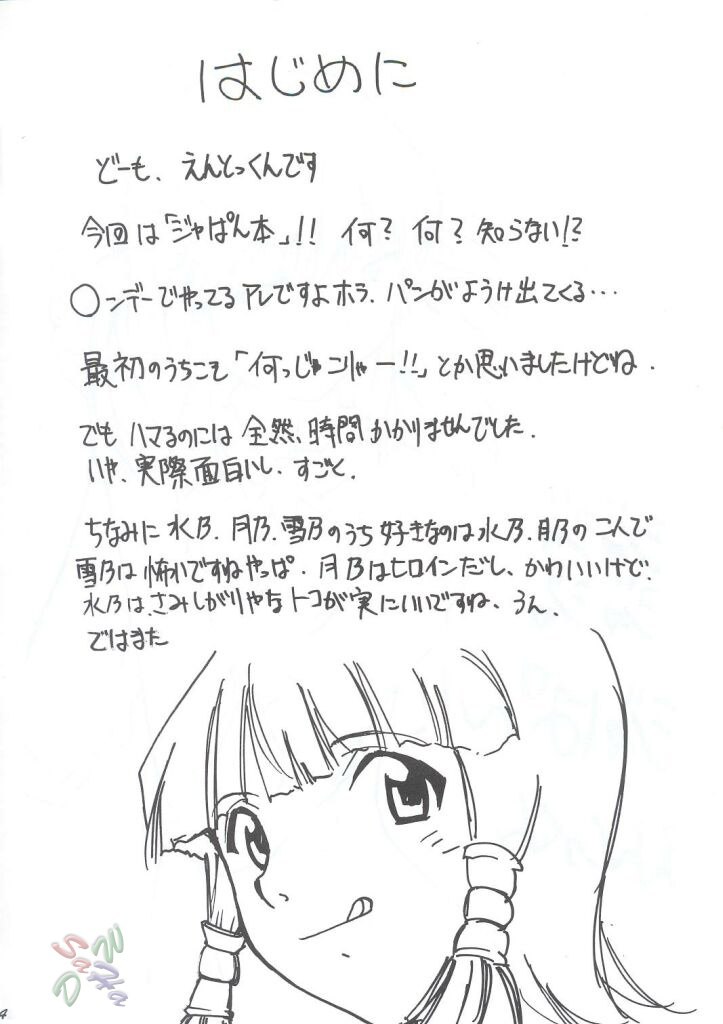 はじめに
どーも、えんとっくんです
今回は「ジャぱん本」!! 何? 何? 知らない!?
○ンデーでやってるアレですよホラ、パンがようけ出てくる…
最初のうちこそ「何っじゃこりゃー!!」とか思いましたけどね.
でもハマるのには全然、時間かかりませんでした.
いや、実際面白いし、すごと.
ちなみに水乃、月乃、雪乃のうち好きなのは水乃、月乃のこんで
雪乃は怖いですねやっぱ. 月乃はヒロインだし、かわいいけど、
水乃は、さみしがりやなトコが実にいいですね、うん.
ではまた
4